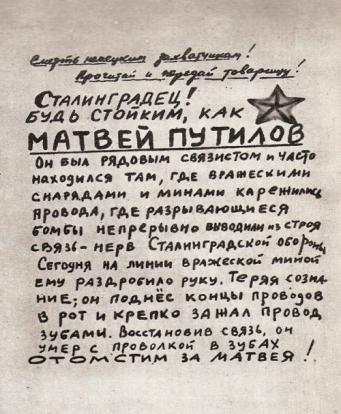 Смерть немецким захватчикам!
Прочитай и передай товарищу!
СТАЛИНГРАДЕЦ!
БУДЬ СТОЙКИМ, КАК
МАТВЕЙ ПУТИЛОВ
Он был рядовым связистом и часто
находился там, где вражескими
снарядами и минами карежились
провода, где разрывающиеся
бомбы непрерывно выводили из строя
связь-нерв Сталинградской обороны
Сегодня на линии вражеской миной
ему раздробило руку. Теряя созна-
ние; он поднёс концы проводов
в рот и крепко зажал провод
зубами. Восстановив связь, он
умер с проволкой в зубах
ОТОМСТИМ ЗА МАТВЕЯ!